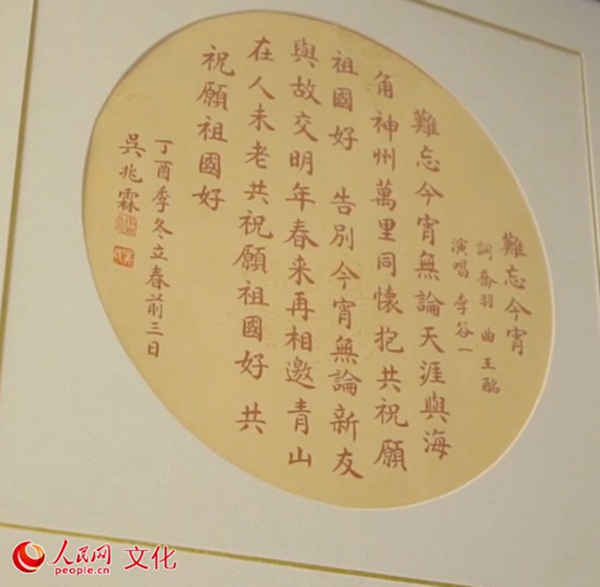 難忘今宵
詞 喬羽 曲 王酩
演唱 李谷一
難忘今宵無論天涯與海
角神州萬里同懷抱共祝願
祖國好 告別今宵無論新友
與故交明年春来再相邀青山
在人未老共祝願祖國好 共
祝願祖國好
丁酉季冬立春前三日
吳兆霖
人民网 文化
people.cn